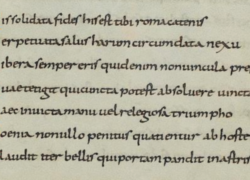 is solidata fides his est tibi roma catenis
erpetuata salus harum circumdata nexu
ibera semper eris quid enim non uincula pre
uae tetigit qui cuncta potest absoluere uincta
aec inuicta manu uel relegiosa triumpho
oenia non ullo penitus quatientur ab hoste
laudit iter bellis qui portam pandit in astris